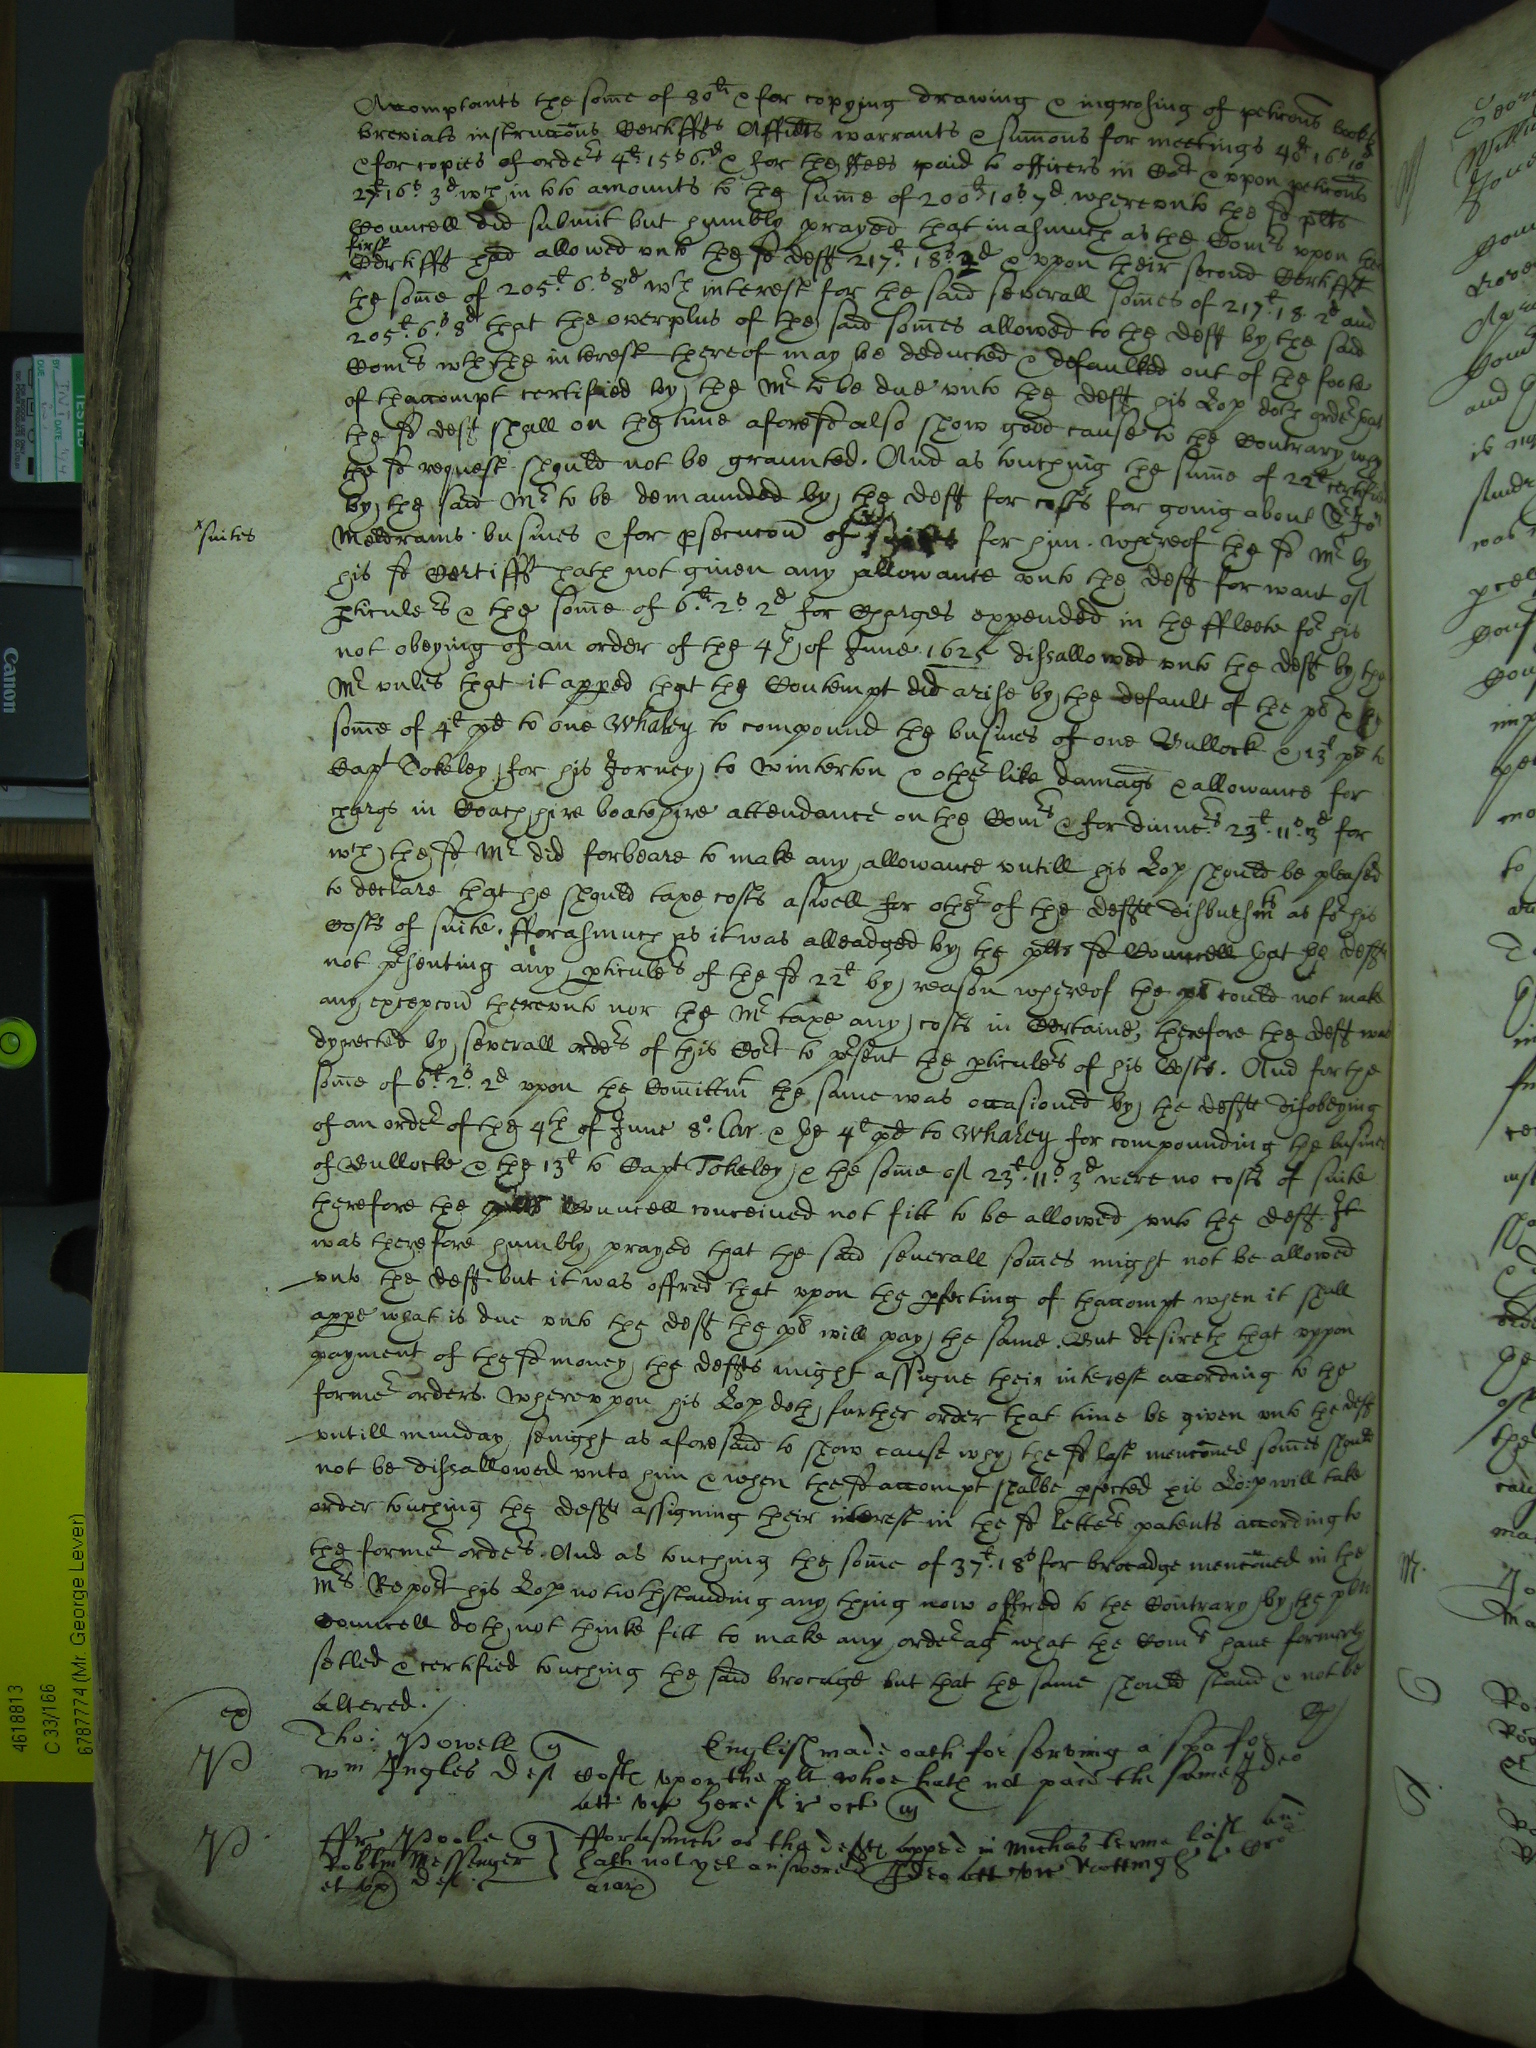 Accomptants the some of 80li & for copying drawing & ingrosing of peticons bookes
breviats instruccons Certiffts Affidts warrants & sumons for meetings 48li 16s 10d
& for copies of orders 4li 15s 6d & for the ffees paid to officers in Cort & vpon peticons
27li 16s 3d wch in toto amounts to the sume of 200li 10s 7d wherevnto the sd plts
Councell did submit but humbly prayed that inasmuch as the Comrs vpon their
first Certifft had allowed vnto the sd deft 217li 18s 2d & vpon their second Certifft
the some of 205li 6s 8d wth interest for the said severall somes of 217li 18 2d and
205li 6s 8d that the overplus of the said somes allowed to the deft by the said
Comrs wth the interest thereof may be deducted & defaulked out of the foote
of thaccompt certified by the Mr to be due vnto the deft his Lop doth order that
the sd deft shall on the time aforesd also show good cause to the Contrary why
the sd request should not be graunted. And as touching the sume of 22li certified
by the said Mr to be demaunded by the deft for costs for going about Sr Jon
Meldrams busines & for psecucon of for him whereof the sd Mr by
x suites
his sd Certifft hath not given any allowance vnto the deft for want of
pticulers & the some of 6li 2s 2d for Charges expended in the ffleete for his
not obeying of an order of the 4th of June 1625 dissallowed vnto the deft by the
Mr vnles that it apped that the Contempt did arise by the default of the pt & the
some of 4li pd to one Whaley to compound the busines of one Bullock & 13li pd to
Capt Tokeley for his Jorney to Winterton & other like damags & allowance for
chargs in Coach hire boatehire attendance on the Comrs & for dinners 23li 11s 3d for
wch the sd Mr did forbeare to make any allowance vntill his Lop should be pleased
to declare that he should taxe costs aswell for other of the defts disbursmts as for his
Costs of suite. fforasmuch as it was alleadged by the plts sd Councell that the defts
not pesenting any pticulers of the sd 22li by reason whereof the pt could not make
any excepcon therevnto nor the Mr taxe any costs in Certaine, therefore the deft was
dyrected by severall orders of this Cort to pesent the pticulers of his Costs. And for the
some of 6li 2s 2d vpon the Comittmt the same was occasioned by the defts disobeying
of an order of the 4th of June 8o Car & the 4li pd to Whaley for compounding the busines
of Bullocke & the 13li to Capt Tokeley & the some of 23li 11s 3d were no costs of suite
therefore the plts Councell conceived not fitt to be allowed vnto the deft. It
was therefore humbly prayed that the said severall somes might not be allowed
vnto the deft but it was offred that vpon the pfecting of thaccompt when it shall
appe what is due vnto the deft the pt will pay the same. But desireth that vppon
payment of the sd money the defts might assigne their interest according to the
former orders. Wherevpon his Lop doth further order that time be given vnto the deft
vntill munday senight as aforesaid to show cause why the sd last menconed somes should
not be dissallowed vnto him & when the sd accompt shalbe pfected his Lop will take
order touching the defts assigning their interest in the sd letters patents according to
the former orders. And as touching the some of 37li 18s for brocadge menconed in the
Mrs Report his Lop notwthstanding any thing now offred to the Contrary by the plts
Councell doth not thinke fitt to make any order agt what the Comrs have formerly
setled & certified touching the said brocage but that the same should stand & not be
altered.
Tho: Powell q
Wm Ingles def
English made oath for serving a spa for
Costs vpon the plt whoe hath not paid the same Ideo
att vic Heref
ffr Poole q
Messenger
et ux def
fforasmuch as the defts apped in Michas terme last and
hath not yet answered Ideo att vic Nottingh
4618813
C 33/166
6787774 (Mr. George Lever)
Canon
TESTED
BY
DATE
DUE